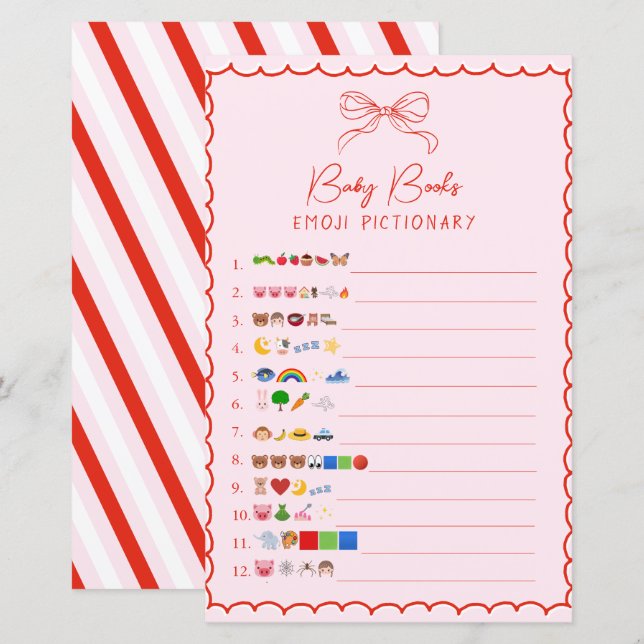 Baby Books
EMOJI PICTIONARY
1.
2.
3.
4.
5.
6.
7.
8.
9.
10.
11.
12.